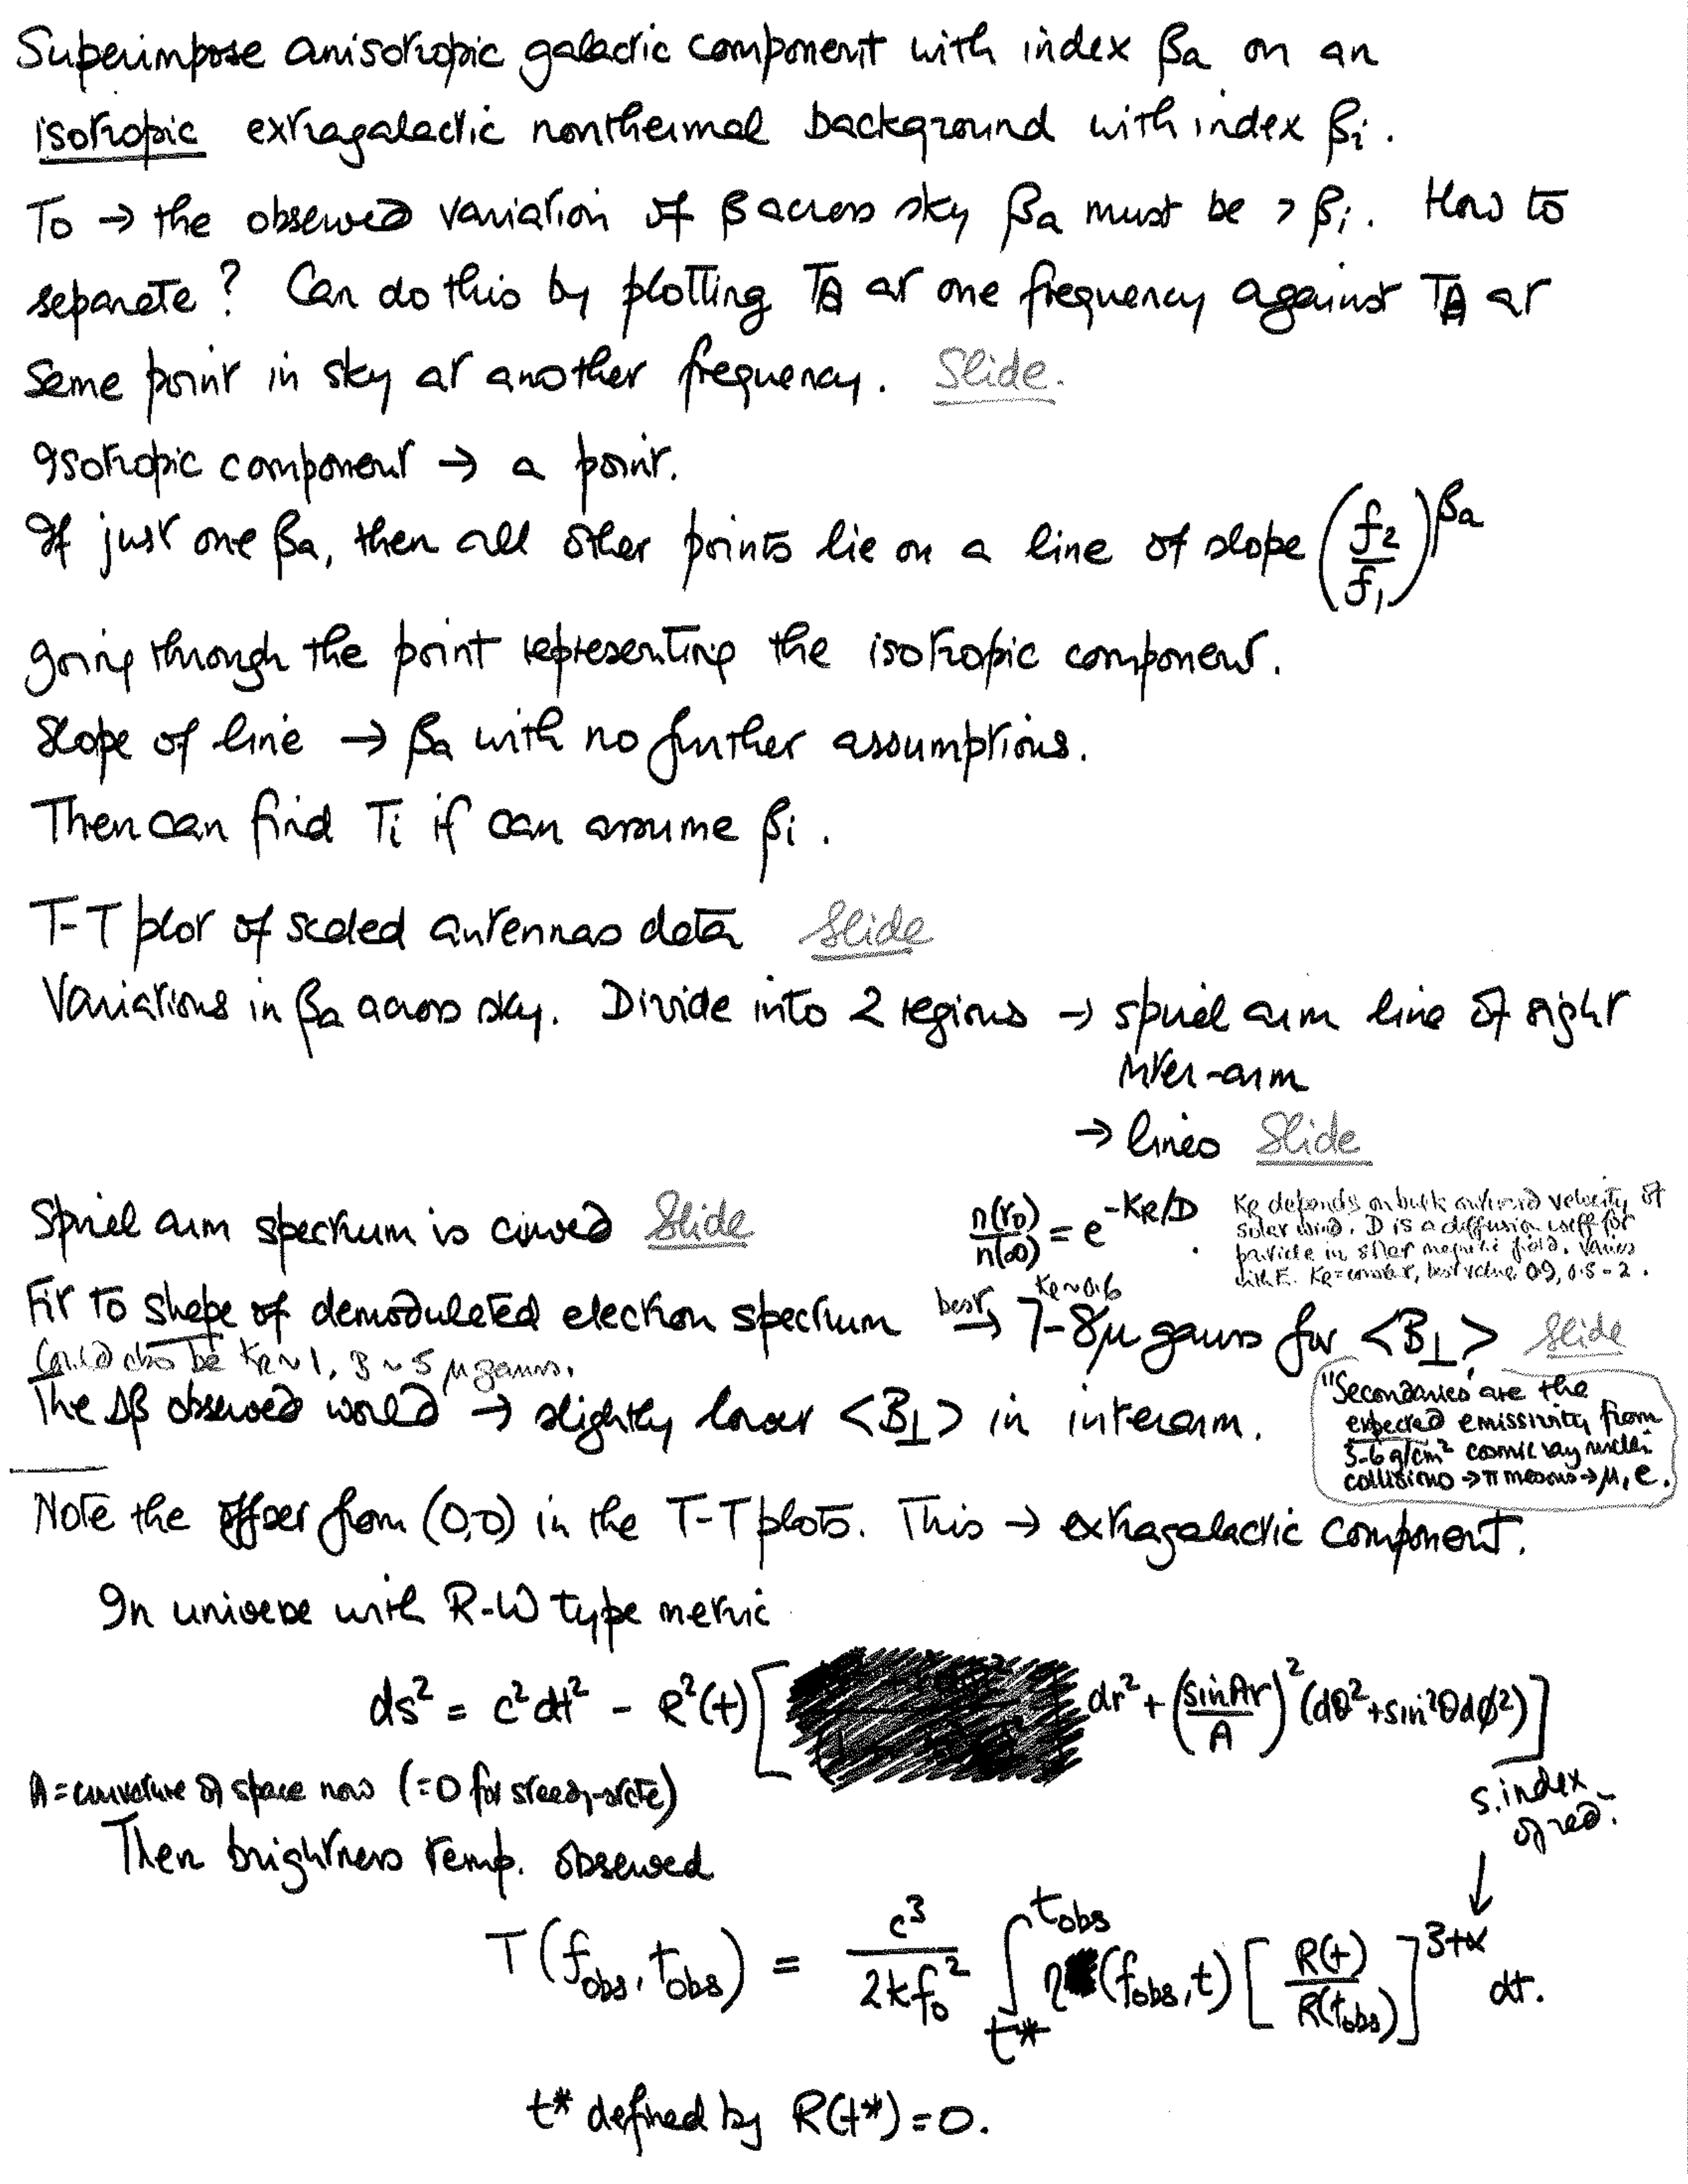 Superimpose anisotropic galactic component with index βa on an
isotropic extragalactic nonthermal background with index βi.
To → the observed variation of β across sky βa must be > βi. How to
separate? Can do this by plotting TA at one frequency against TA at
same point in sky at another frequency. Slide.
Isotropic component → a point.
If just one βa, then all other points lie on a line of slope (f2/f1)^βa
going through the point representing the isotropic component.
Slope of line → βa with no further assumptions.
Then can find Ti if can assume βi.
T-T plot of scaled antennas data Slide
Variations in βa across sky. Divide into 2 regions → spiral arm line of sight
inter-arm
→ lines Slide
Spiral arm spectrum is curved Slide
n(r0)/n(∞) = e^-KR/D.
KR depends on bulk outward velocity of
solar wind. D is a diffusion coeff for
particle in solar magnetic field. Varies
with E. KR=const, best value 0.9, 0.5-2.
Fit to shape of demodulated electron spectrum best → KR~0.6 7-8μ gauss for <B⊥> Slide
Could also be KR~1, B~5 μgauss.
The Δβ observed would → slightly lower <B⊥> in interarm.
"Secondaries' are the
expected emissivity from
3-6 g/cm² cosmic ray nuclei
collisions → π mesons → μ, e.
Note the offset from (0,0) in the T-T plots. This → extragalactic component.
In universe with R-W type metric
ds² = c²dt² - R²(t)[dr² + (sinAr/A)²(dθ²+sin²θdφ²)]
A = curvature of space now (=0 for steady-state)
s.index
of rad.
Then brightness temp. observed
T(fobs, tobs) = c³/2kf0² ∫t*^tobs η(fobs,t) [R(t)/R(tobs)]^3+α dt.
t* defined by R(t*)=0.